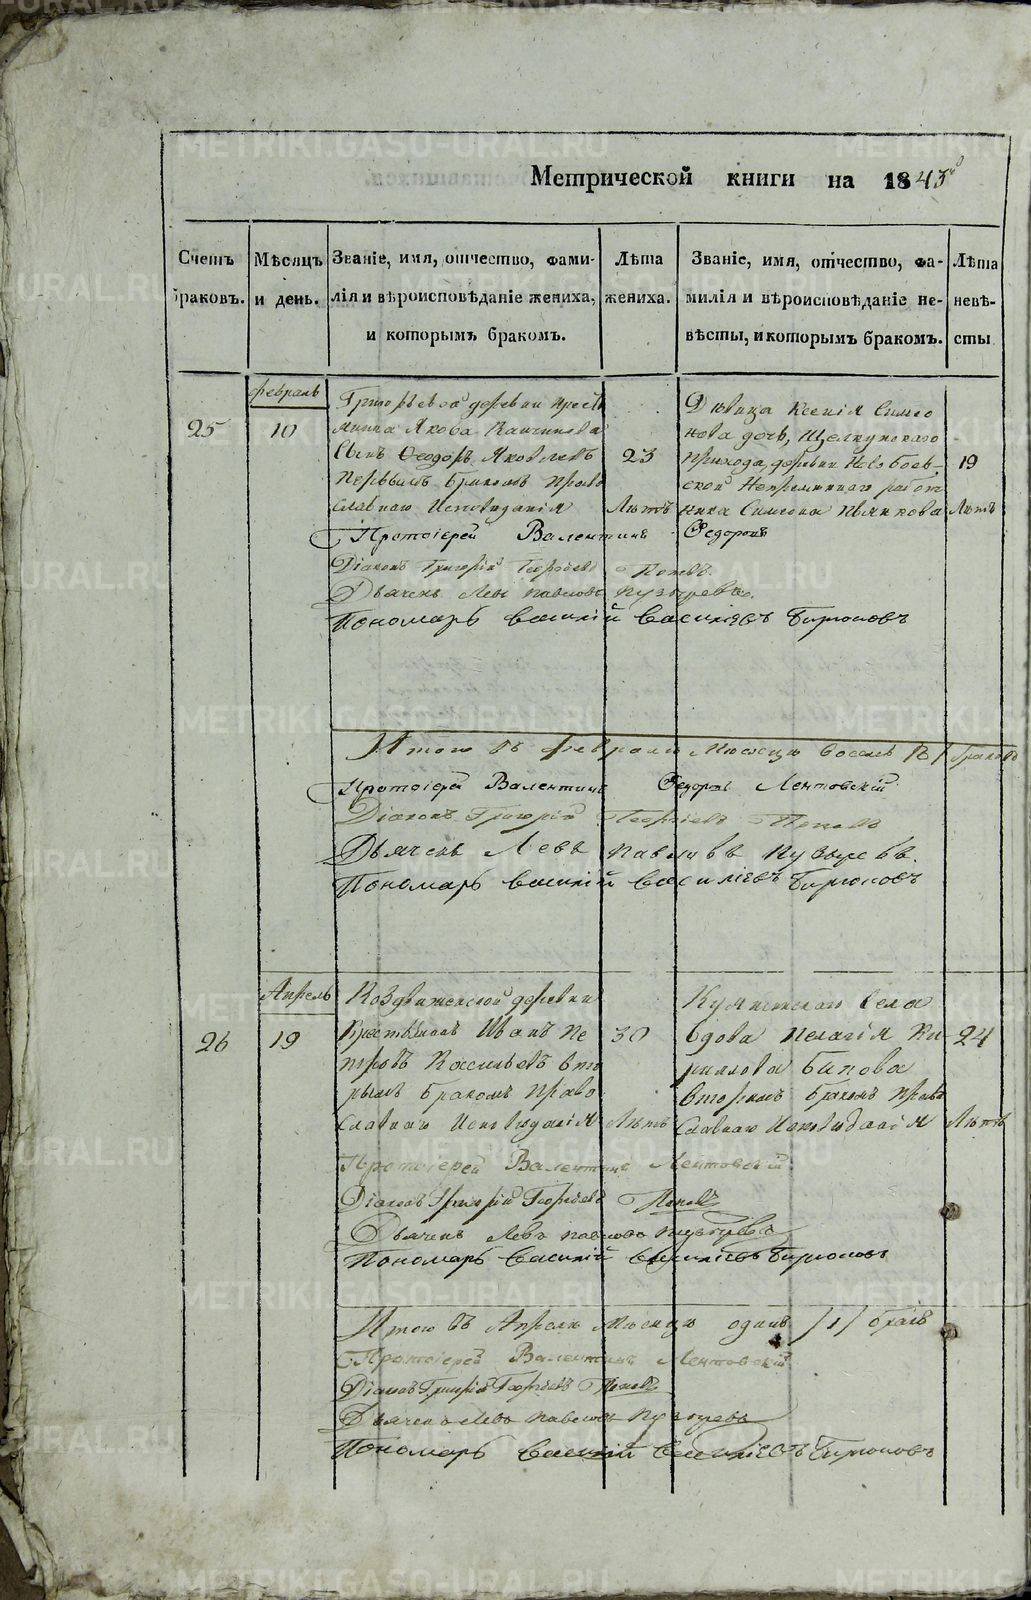 Метрической книги на 1843й
Счетъ браковъ.
Мѣсяцъ и день.
Званіе, имя, отчество, фами-
лія и вѣроисповѣданіе жениха,
и которымъ бракомъ.
Лѣта
жениха.
Званіе, имя, отчество, фа-
милія и вѣроисповѣданіе не-
вѣсты, и которымъ бракомъ.
Лѣта
невѣ-
сты
25
Февраль
10
деревни крестья
нина Якова
Сынъ Ѳеодоръ Яковлевъ
первымъ бракомъ право
славнаго исповѣданія
23
Лѣтъ
Дѣвица Ксенія Симео
нова дочь, Щелкунскаго
прихода, деревни
ской Непремѣннаго работ
ника Симеона Пьянкова
19
Лѣтъ
Протоіерей Валентинъ Ѳедоровъ
Діаконъ Григорій Георгіевъ Поповъ
Дьячекъ Левъ Павловъ Пузыревъ
Пономарь Василій Василіевъ Бирюковъ
Итого въ Февралѣ Мѣсяцѣ браковъ
Протоіерей Валентинъ Ѳедоровъ Лентовскій
Діаконъ Григорій Георгіевъ Поповъ
Дьячекъ Левъ Павловъ Пузыревъ.
Пономарь Василій Василіевъ Бирюковъ
26
Апрель
19
Воздвиженской деревни
Крестьянинъ Иванъ Пе
тровъ вто
рымъ бракомъ право
славнаго исповѣданія
30
Лѣтъ
села
вдова Пелагія Ки
рилова
вторымъ бракомъ право
славнаго исповѣданія
24
Лѣтъ
Протоіерей Валентинъ Лентовскій
Діаконъ Григорій Георгіевъ Поповъ
Дьячекъ Левъ Павловъ Пузыревъ
Пономарь Василій Василіевъ Бирюковъ
Итого въ Апрелѣ Мѣсяцѣ одинъ /1/ бракъ
Протоіерей Валентинъ Лентовскій
Діаконъ Григорій Георгіевъ Поповъ
Дьячекъ Левъ Павловъ Пузыревъ
Пономарь Василій Василіевъ Бирюковъ
METRIKI.GASO-URAL.RU